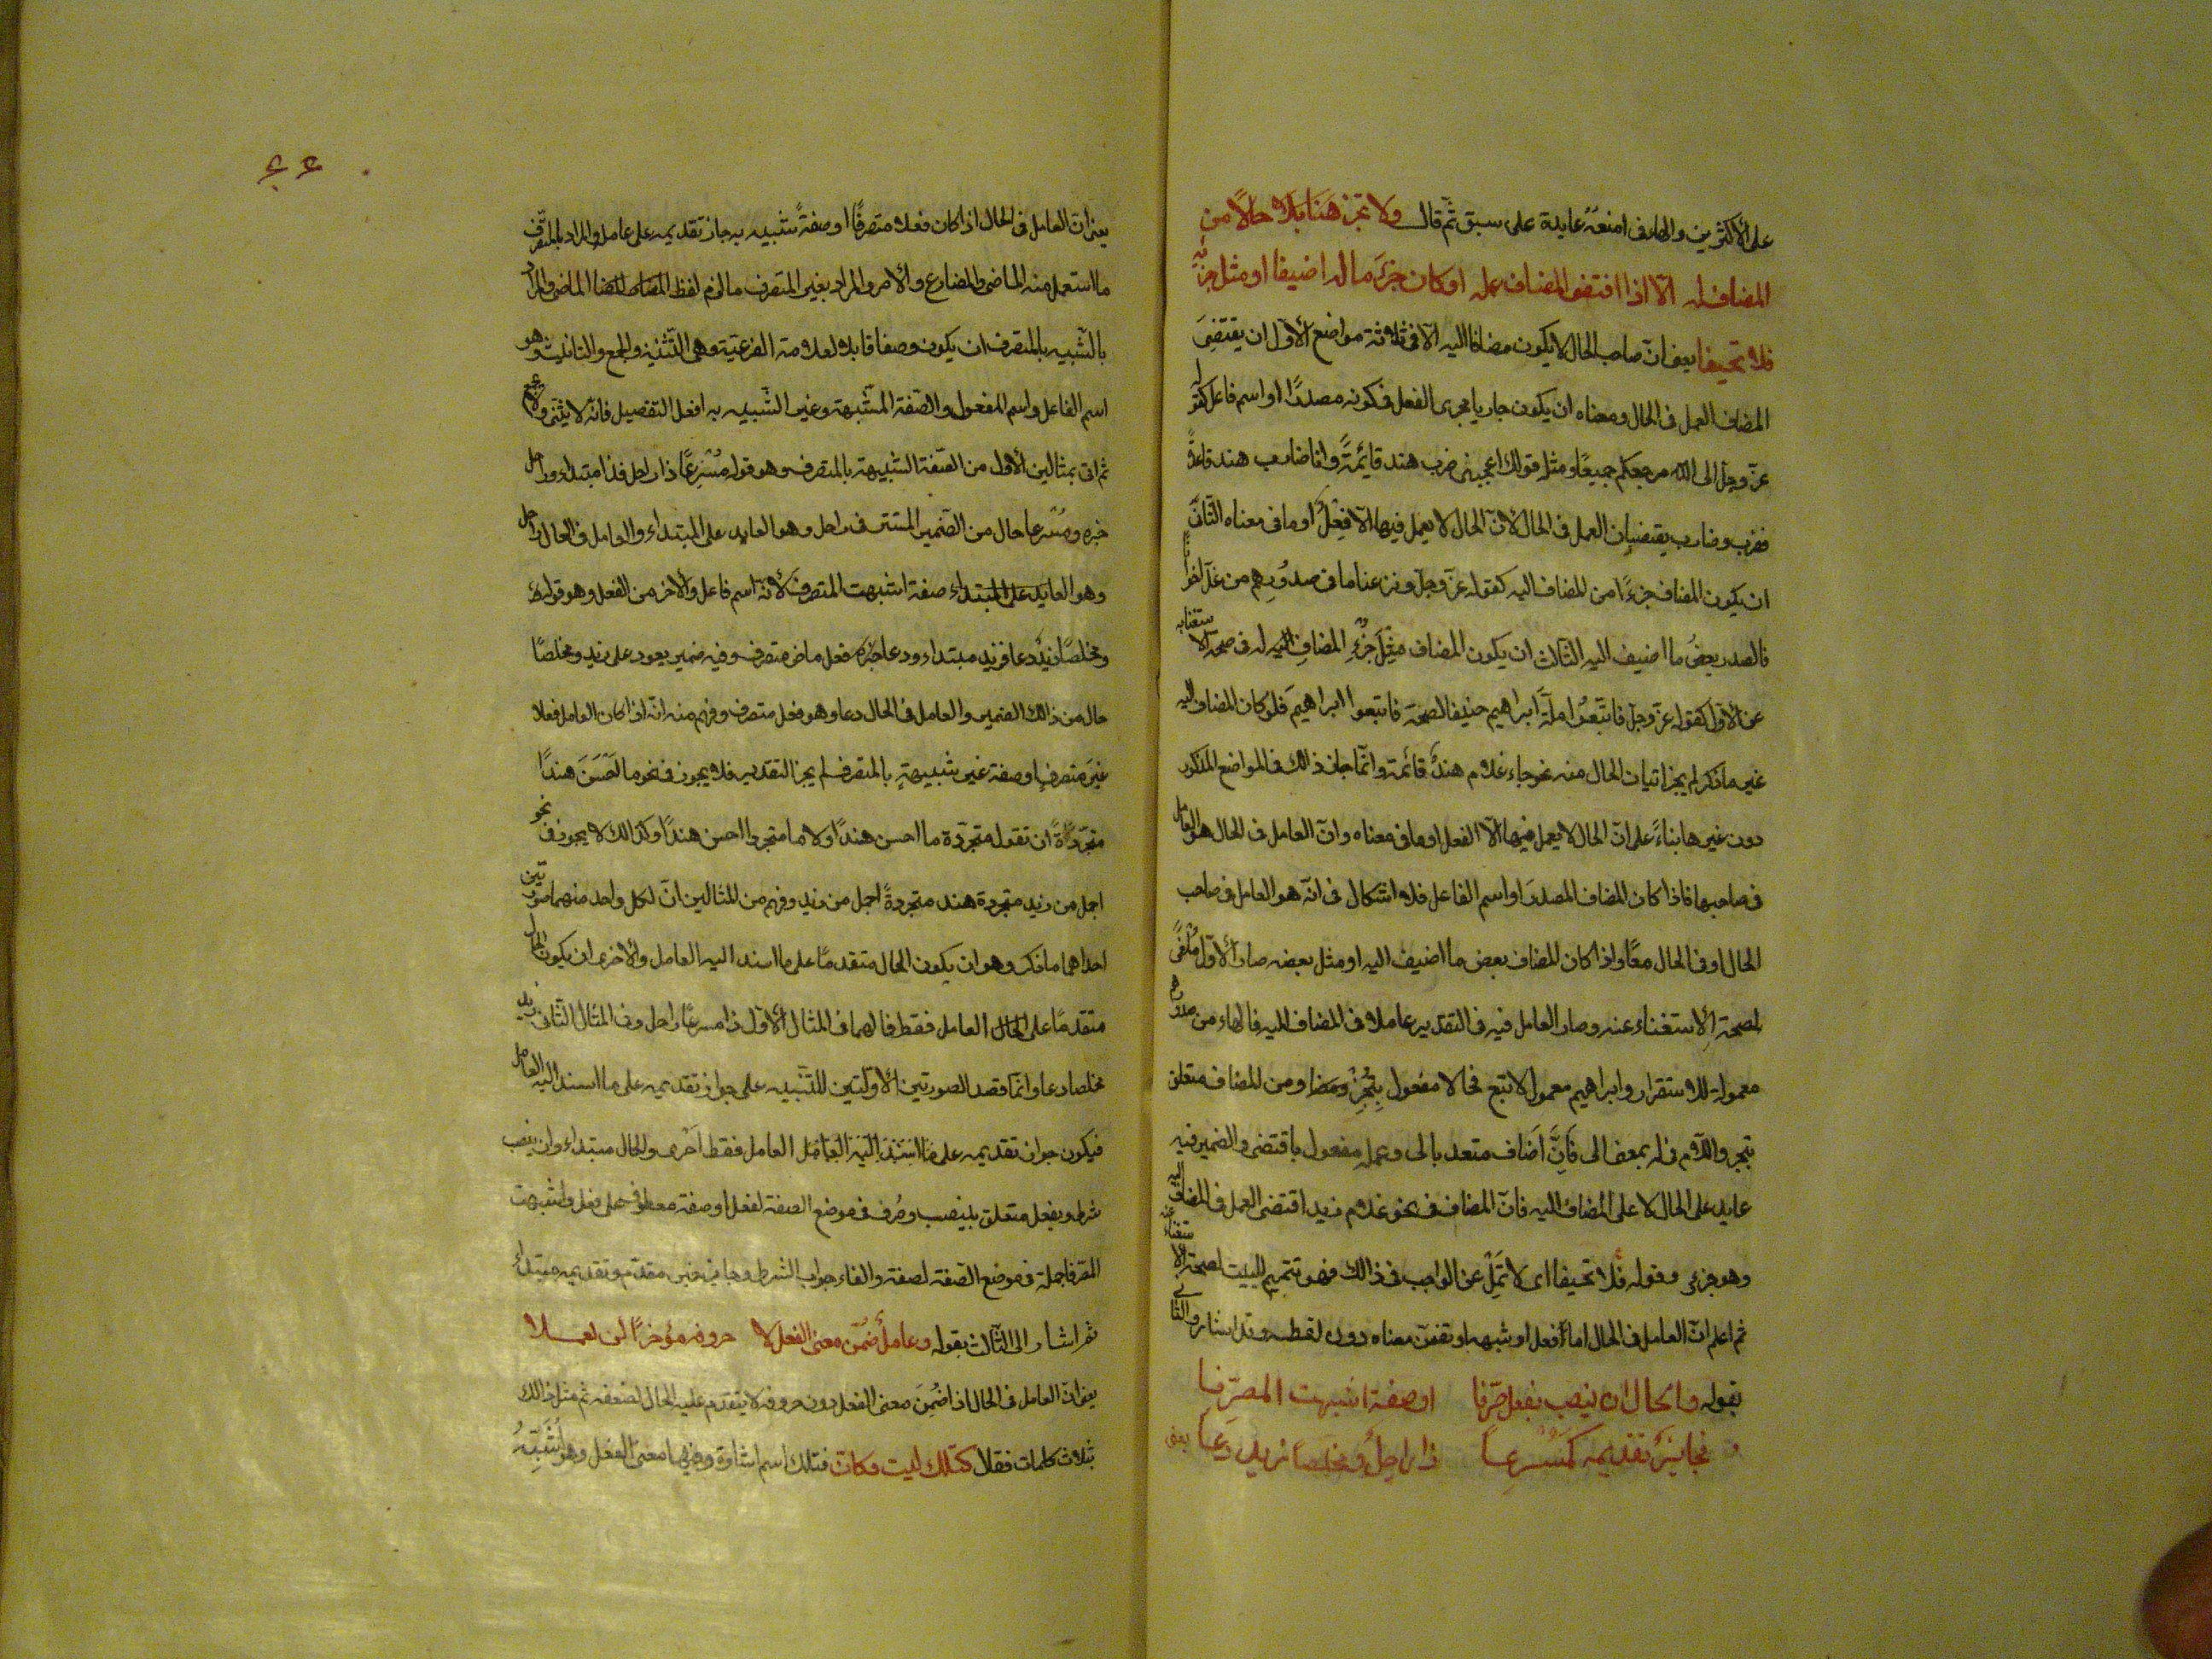 على الأكثرين والهاء في امنعه عايدة على سبق ثم قال ولا تجز هنا بلا حالا من
المضاف له الا اذا اقتضى المضاف عمله او كان جزء ما له اضيفا او مثل جزئه
فلا تحيفا يعني ان صاحب الحال لا يكون مضافا اليه الا في ثلاثة مواضع الأول ان يقتضي
المضاف العمل في الحال ومعناه ان يكون جاريا مجرى الفعل فكونه مصدرا او اسم فاعل كقوله
عز وجل الى الله مرجعكم جميعا ومثله قولك اعجبني ضرب هند قائمة وانا ضارب هند قاعدة
فضرب وضارب يقتضيان العمل في الحال لأن الحال لا يعمل فيها الا فعل او ما في معناه الثاني
ان يكون المضاف جزءا من المضاف اليه كقوله عز وجل ونزعنا ما في صدورهم من غل اخوانا
فالصدر بعض ما اضيف اليه الثالث ان يكون المضاف مثل جزء المضاف اليه له في صحة الاستغنابه
عن الأول كقوله عز وجل فاتبعوا ملة ابراهيم حنيفا لصحة فاتبعوا ابراهيم فلو كان المضاف اليه
غير ما ذكر لم يجز اتيان الحال منه نحو جاء غلام هند قائمة وانما جاز ذالك في المواضع المذكور
دون غيرها بناء على ان الحال لا يعمل فيها الا الفعل او ما في معناه وان العامل في الحال هو العامل
في صاحبها فاذا كان المضاف المصدر او اسم الفاعل فلا اشكال في انه هو العامل في صاحب
الحال او في الحال معا واذا كان المضاف بعض ما اضيف اليه او مثل بعضه صار الأول ملغى
لصحة الاستغناء عنه وصار العامل فيه في التقدير عاملا في المضاف اليه فالهاء من صدورهم
معمولة للاستقرار وابراهيم معمول لاتبع فحالا مفعول بتجز ومضا ومن للمضاف متعلق
بتجز واللام في له بمعنى الى فان أضاف متعد بالى وعمله مفعول باقتضى والضمير فيه
عايد على الحال لا على المضاف اليه فان المضاف في نحو غلام زيد اقتضى العمل في المضاف اليه
وهو جزءي وقوله فلا تحيفا اى لا تمل عن الواجب في ذالك فهو تتميم للبيت لصحة الاستغناء عنه
ثم اعلم ان العامل في الحال اما فعل او شبهه او تضمن معناه دون لفظه وقد اشار والثاني
بقوله والحال ان ينصب بفعل صرفا او صفة اشبهت المصرفا
فجائز تقديمه كمسرعا ذا راحل ومخلصا زيد دعا يعنى
٤٤
يعني ان العامل في الحال اذا كان فعلا متصرفا او صفة شبيه به جاز تقديمه على عامله والمراد بالمتصرف
ما استعمل منه الماضي والمضارع والأمر والمراد بغير المتصرف ما لزم لفظ الماضي والمراد
بالشبيه بالمتصرف ان يكون وصفا قابلا لعلامة الفرعية وهي التثنية والجمع والتانيث وهو
اسم الفاعل واسم المفعول والصفة المشبهة وغير الشبيه به افعل التفضيل فانه لا يثنى ولا يجمع
ثم اتى بمثالين الأول من الصفة الشبيهة بالمتصرف وهو قوله مسرعا ذا راحل فذا مبتداء وراحل
خبره ومسرعا حال من الضمير المستتر في راحل وهو العايد على المبتداء والعامل في الحال راحل
وهو العايد على المبتداء صفة اشبهت المتصرف لأنه اسم فاعل والآخر من الفعل وهو قوله
ومخلصا زيد دعا فزيد مبتداء ودعا خبره فعل ماض متصرف وفيه ضمير يعود على زيد ومخلصا
حال من ذالك الضمير والعامل في الحال دعا وهو فعل متصرف وفهم منه انه اذا كان العامل فعلا
غير متصرف او صفة غير شبيهة بالمتصرف لم يجز التقديم فلا يجوز في نحو ما احسن هندا
متجردة ان تقول متجردة ما احسن هندا ولا ما متجردا احسن هندا وكذالك لا يجوز في نحو
اجمل من زيد متجردة هند متجردة اجمل من زيد وفهم من المثالين ان لكل واحد منهما صورتين
احداهما ما ذكر وهو ان يكون الحال متقدما على ما اسند اليه العامل والأخرى ان يكون الحال
متقدما على العامل فقط فالهما في المثال الأول ذا مسرعا راحل وفي المثال الثاني زيد
مخلصا دعا وانما قصد الصورتين الأولتين للتنبيه على جواز تقديمه على ما اسند اليه العامل
فيكون جواز تقديمه على العامل فقط أحرى والحال مبتداء وان ينصب
شرط وبفعل متعلق بلينصب وصرف في موضع الصفة لفعل او صفة معطوف على فعل واشبهت
المصرفا جملة في موضع الصفة لصفة والفاء جواب الشرط وجايز خبر مقدم وتقديمه مبتداء
ثم اشار الى الثالث بقوله وعامل ضمن معنى الفعل لا حروفه مؤخرا لن يعملا
يعني ان العامل في الحال اذا ضمن معنى الفعل دون حروفه لا يتقدم عليه الحال لضعفه ثم مثل ذالك
بثلاث كلمات فقال كتلك ليت وكان فتلك اسم اشارة وفيها معنى الفعل وهو